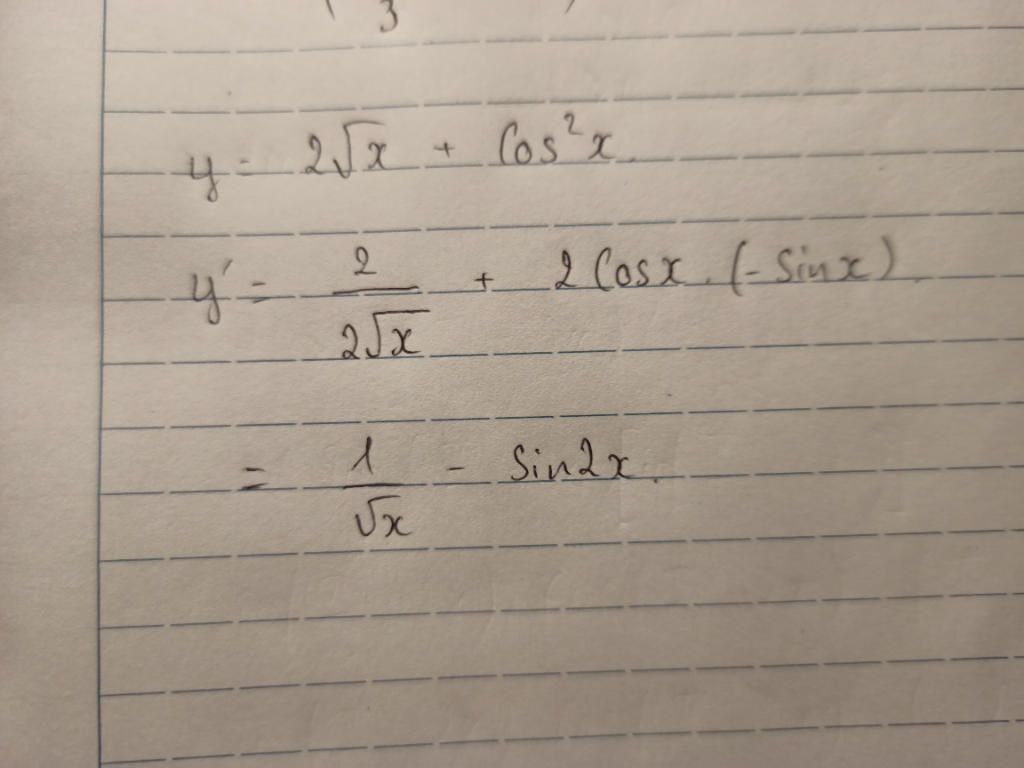 3
y = 2√x + Cos²x.
y' = 2/(2√x) + 2 Cosx . (- Sinx).
= 1/√x - Sin2x.